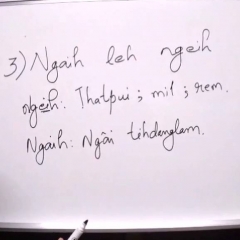 3) Ngaih leh ngeih
Ngeih: Thatpui; mil; rem.
Ngaih: Ngâi tihdanglam.